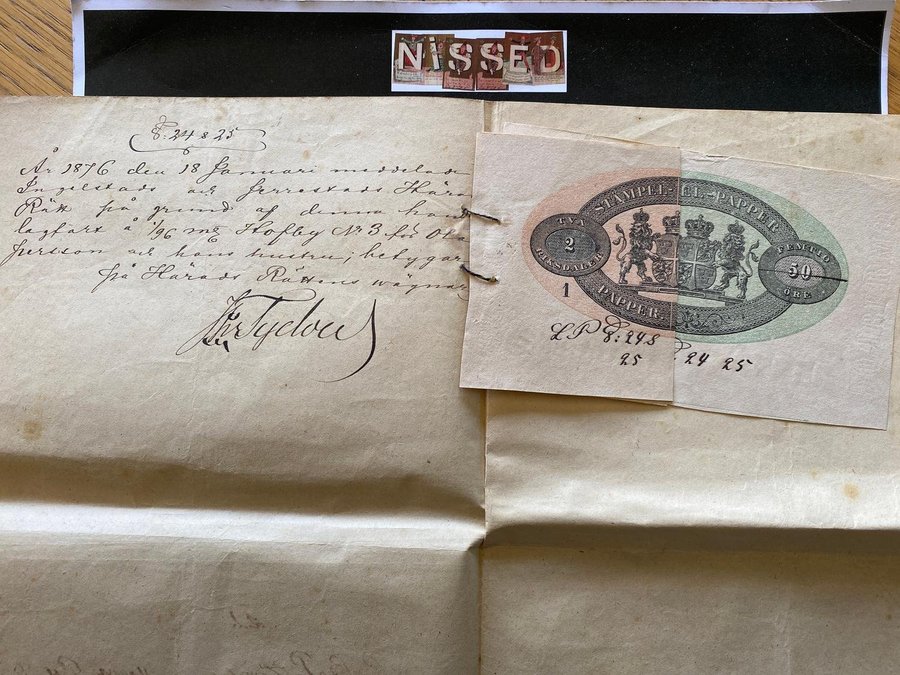 NiSSED
§: 24 & 25
År 1876 den 18 Januari meddelade
Ingelstads och Jerrestads Hära
Rätt på grund af denna han
lagfart å 1/96 mtl Stofby No 3 för Ola
Persson och hans hustru; betygar
på Härads Rättens wägnar
STÄMPEL-
TVÅ
2
RIKSDALER
PAPPER
1
EL-PAPPER
FEMTIO
50
ÖRE
LP §: 24 &
25
24 25